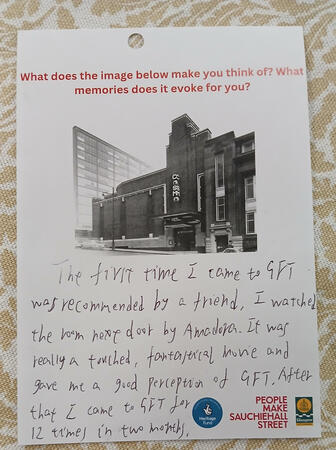 What does the image below make you think of? What
memories does it evoke for you?
COSMO
The first time I came to GFT
was recommended by a friend, I watched
the room next door by Amadora. It was
really a touched, fantastical movie and
gave me a good perception of GFT. After
that I came to GFT for
12 times in two months.
Heritage
Fund
PEOPLE
MAKE
SAUCHIEHALL
STREET